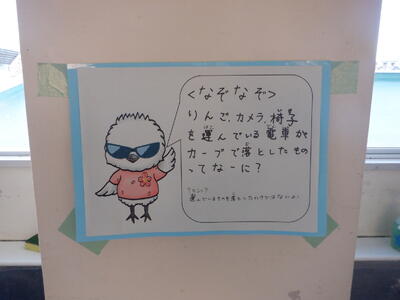 <なぞなぞ>
りんご、カメラ、椅子
を運んでいる電車が
カーブで落としたもの
ってなーに？
ヒント？
運んでいるものを落としたわけではないよ！